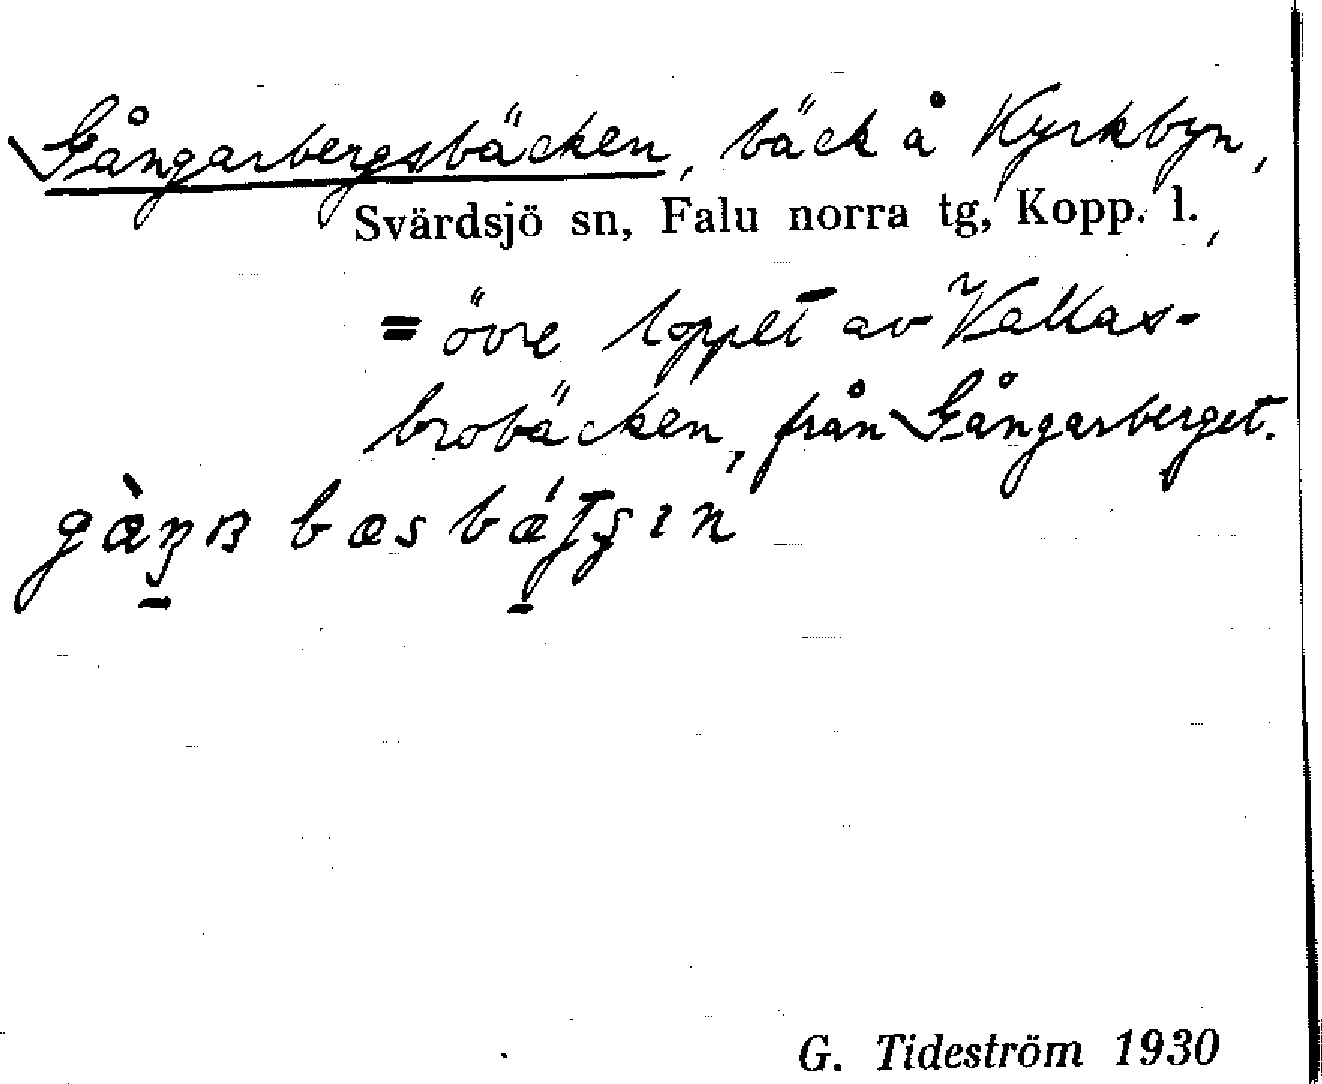 Gångarbergsbäcken, bäck å Kyrkbyn,
Svärdsjö sn, Falu norra tg, Kopp. l.,
= övre loppet av Vallas-
brobäcken, från Gångarberget.
G. Tideström 1930